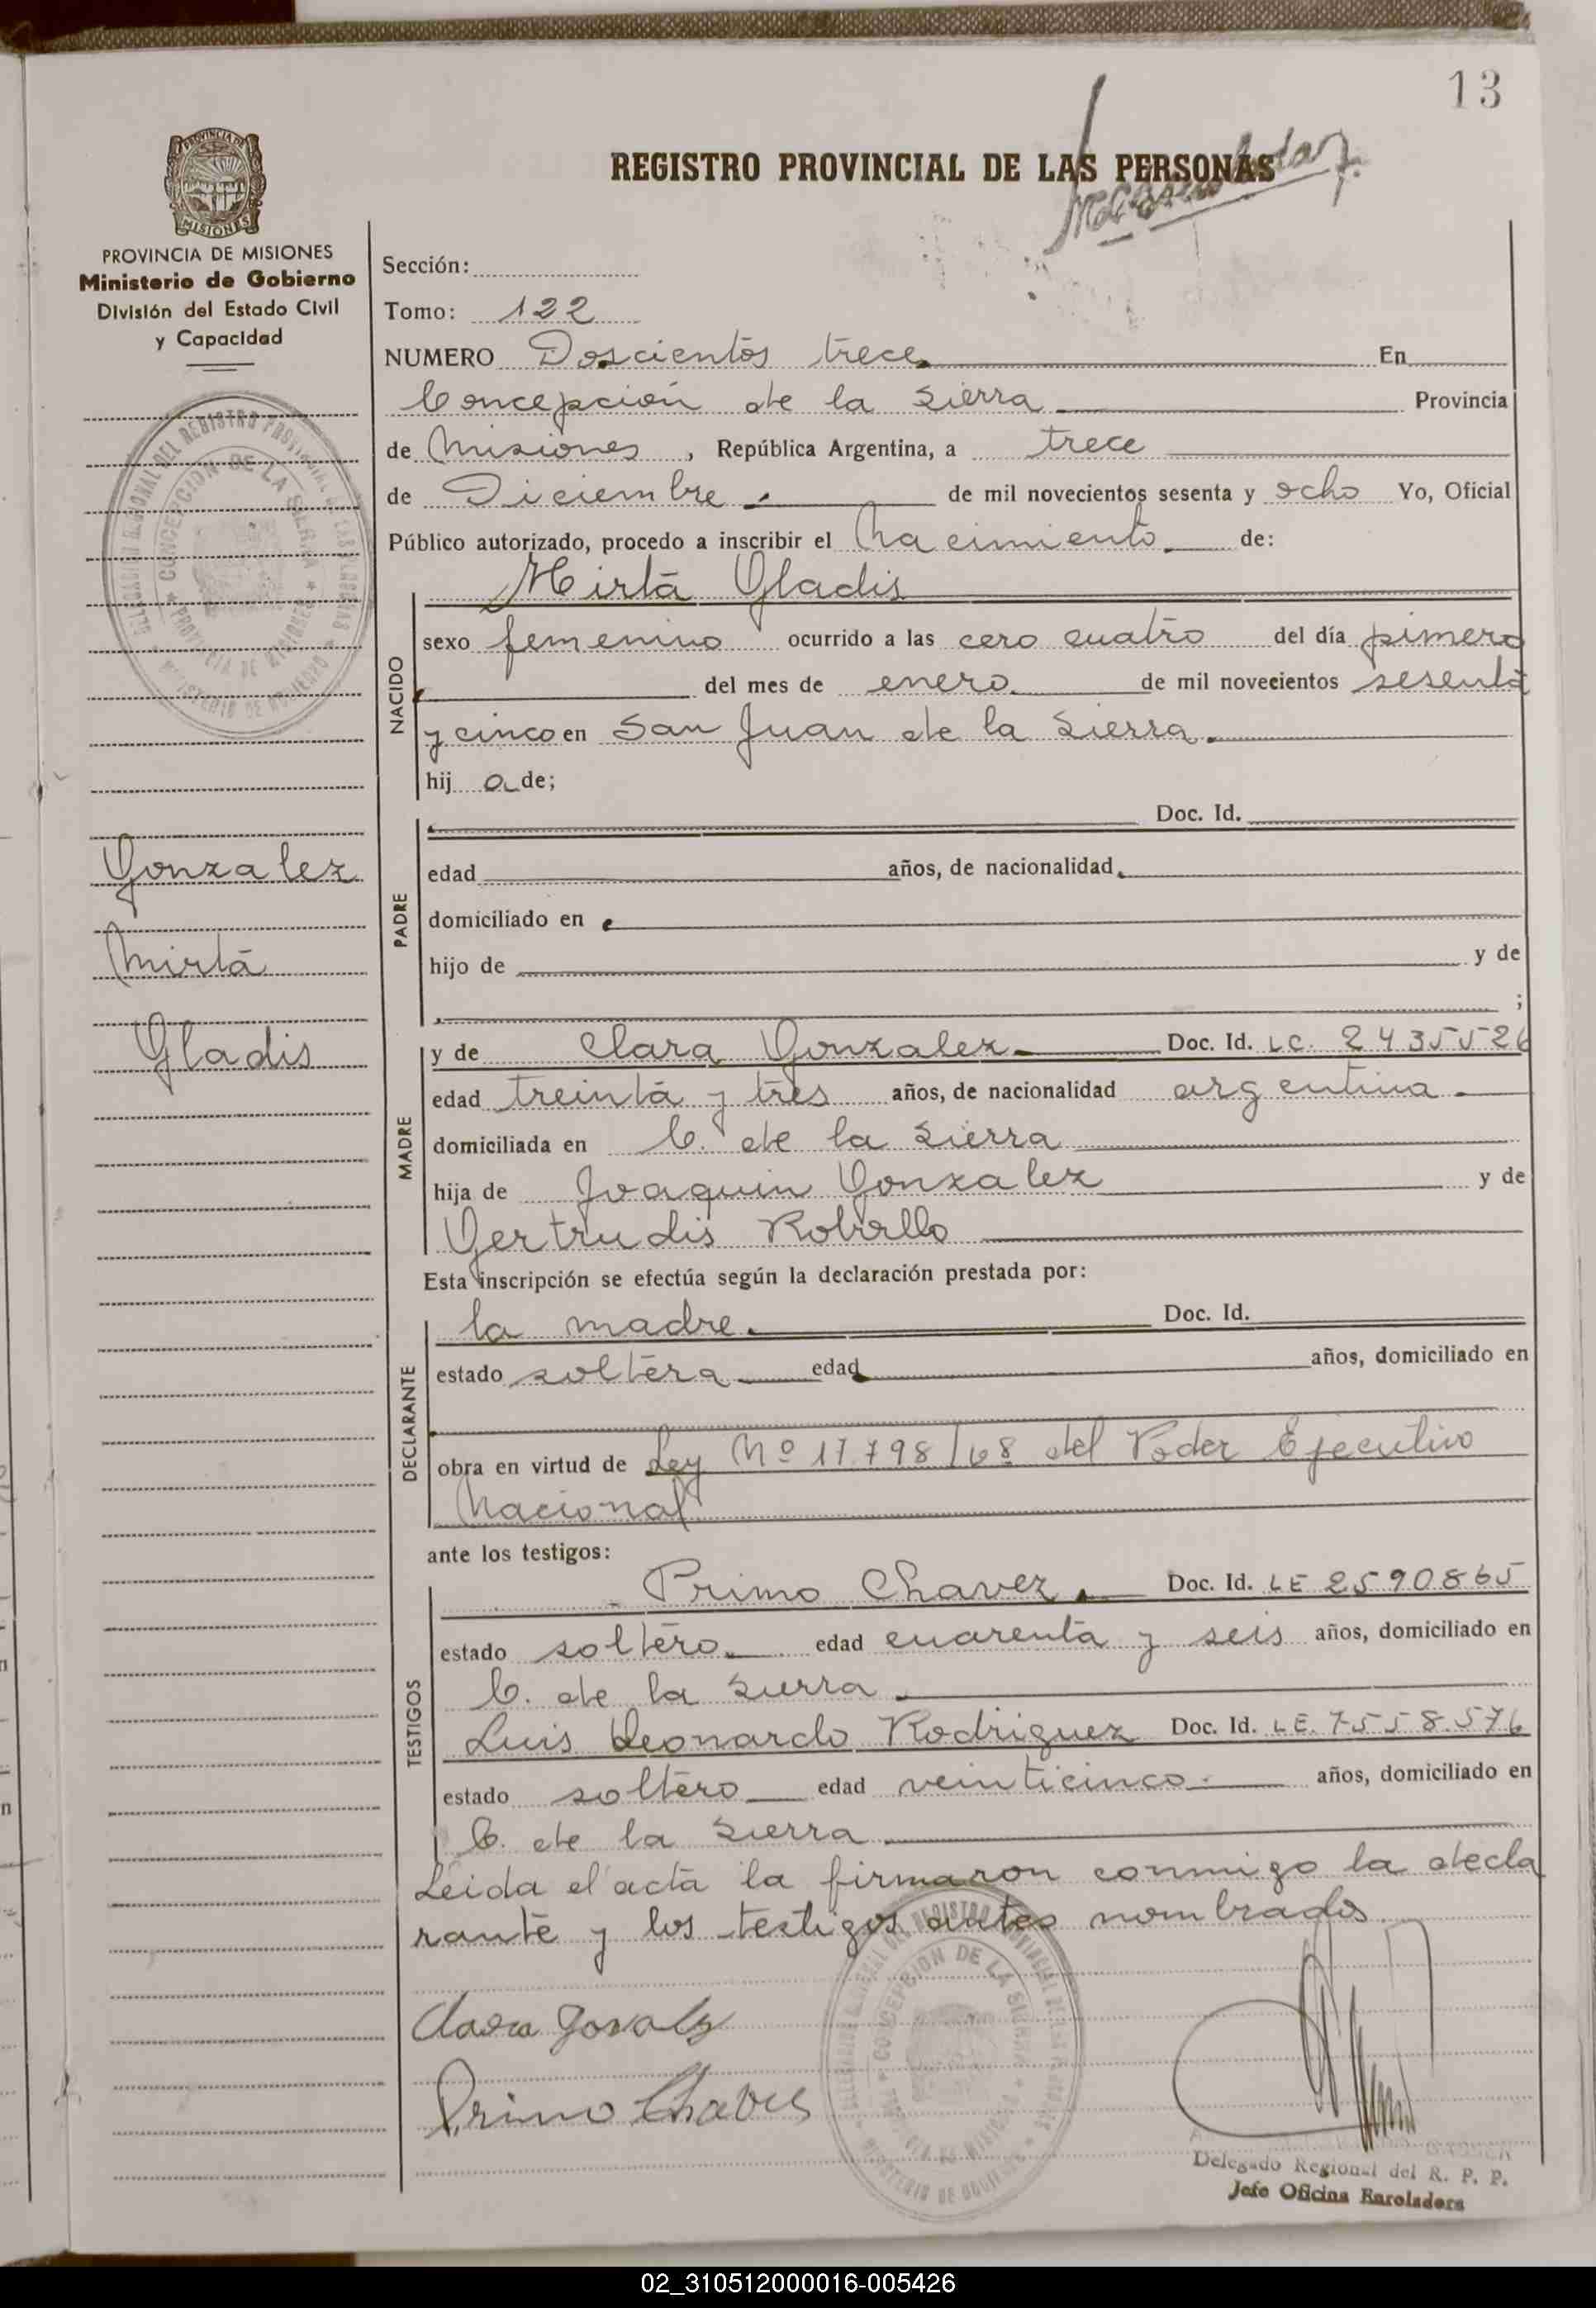 13
REGISTRO PROVINCIAL DE LAS PERSONAS
PROVINCIA DE MISIONES
Ministerio de Gobierno
División del Estado Civil
y Capacidad
Sección:
Tomo: 122
NUMERO Doscientos trece En
Concepción de la Sierra Provincia
de Misiones, República Argentina, a trece
de Diciembre de mil novecientos sesenta y ocho Yo, Oficial
Público autorizado, procedo a inscribir el Nacimiento de:
Mirta Gladis
NACIDO
sexo femenino ocurrido a las cero cuatro del día pimero
del mes de enero de mil novecientos sesenta
y cinco en San Juan de la Sierra
hija de;
Gonzalez
Mirta
Gladis
PADRE
Doc. Id.
edad años, de nacionalidad
domiciliado en
hijo de y de
;
MADRE
y de Clara Gonzalez Doc. Id. LC. 2435526
edad treinta y tres años, de nacionalidad argentina
domiciliada en C. de la Sierra
hija de Joaquin Gonzalez y de
Gertrudis
Esta inscripción se efectúa según la declaración prestada por:
DECLARANTE
la madre. Doc. Id.
estado soltera edad años, domiciliado en
obra en virtud de Ley Nº 17.798/68 del Poder Ejecutivo
Nacional
ante los testigos:
TESTIGOS
Primo Chavez Doc. Id. LE 2590865
estado soltero edad cuarenta y seis años, domiciliado en
C. de la Sierra
Luis Leonardo Rodriguez Doc. Id. LE. 7558.576
estado soltero edad veinticinco años, domiciliado en
C. de la Sierra
Leida el acta la firmaron conmigo la decla
rante y los testigos antes nombrados
CONCEPCION DE LA SIERRA
Primo Chaves
Delegado Regional del R. P. P.
Jefe Oficina Enroladora
02_310512000016-005426